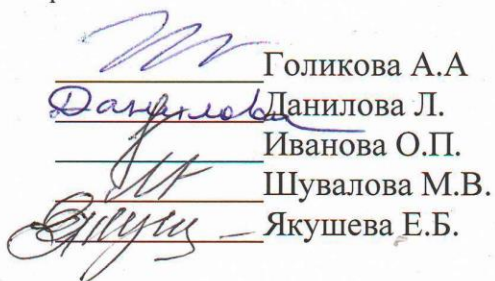 Голикова А.А
Данилова Данилова Л.
Иванова О.П.
Шувалова М.В.
Якушева Е.Б.